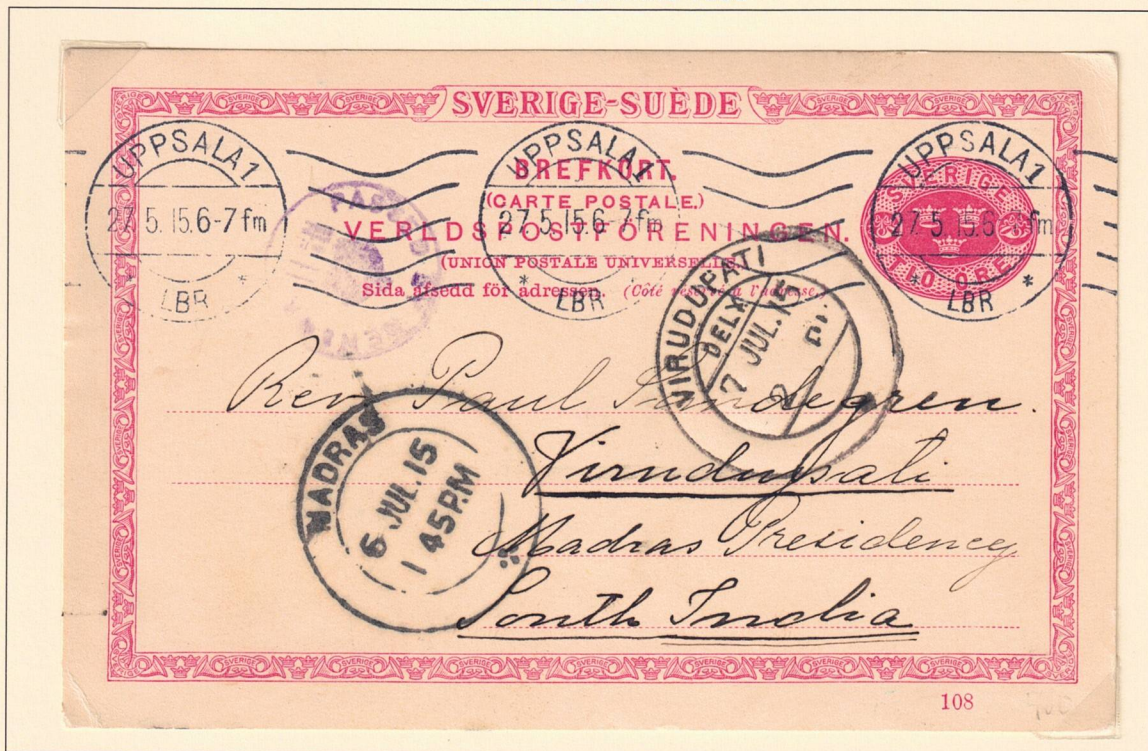 SVERIGE-SUÈDE
UPPSALA 1
27.5.15.6-7 fm
* LBR *
UPPSALA 1
27.5.15.6-7 fm
* LBR *
UPPSALA 1
27.5.15.6-7 fm
* LBR *
BREFKORT.
(CARTE POSTALE.)
VERLDSPOSTFÖRENINGEN.
(UNION POSTALE UNIVERSELLE.)
Sida afsedd för adressen. (Côté réservé à l'adresse.)
SVERIGE
TIO ÖRE
PASSED
VIRUDUPATI
DELY.
7 JUL.15
Rev. Paul Sandegren.
Virudupati
Madras Presidency
South India
MADRAS
6 JUL.15
1 45 P.M
108